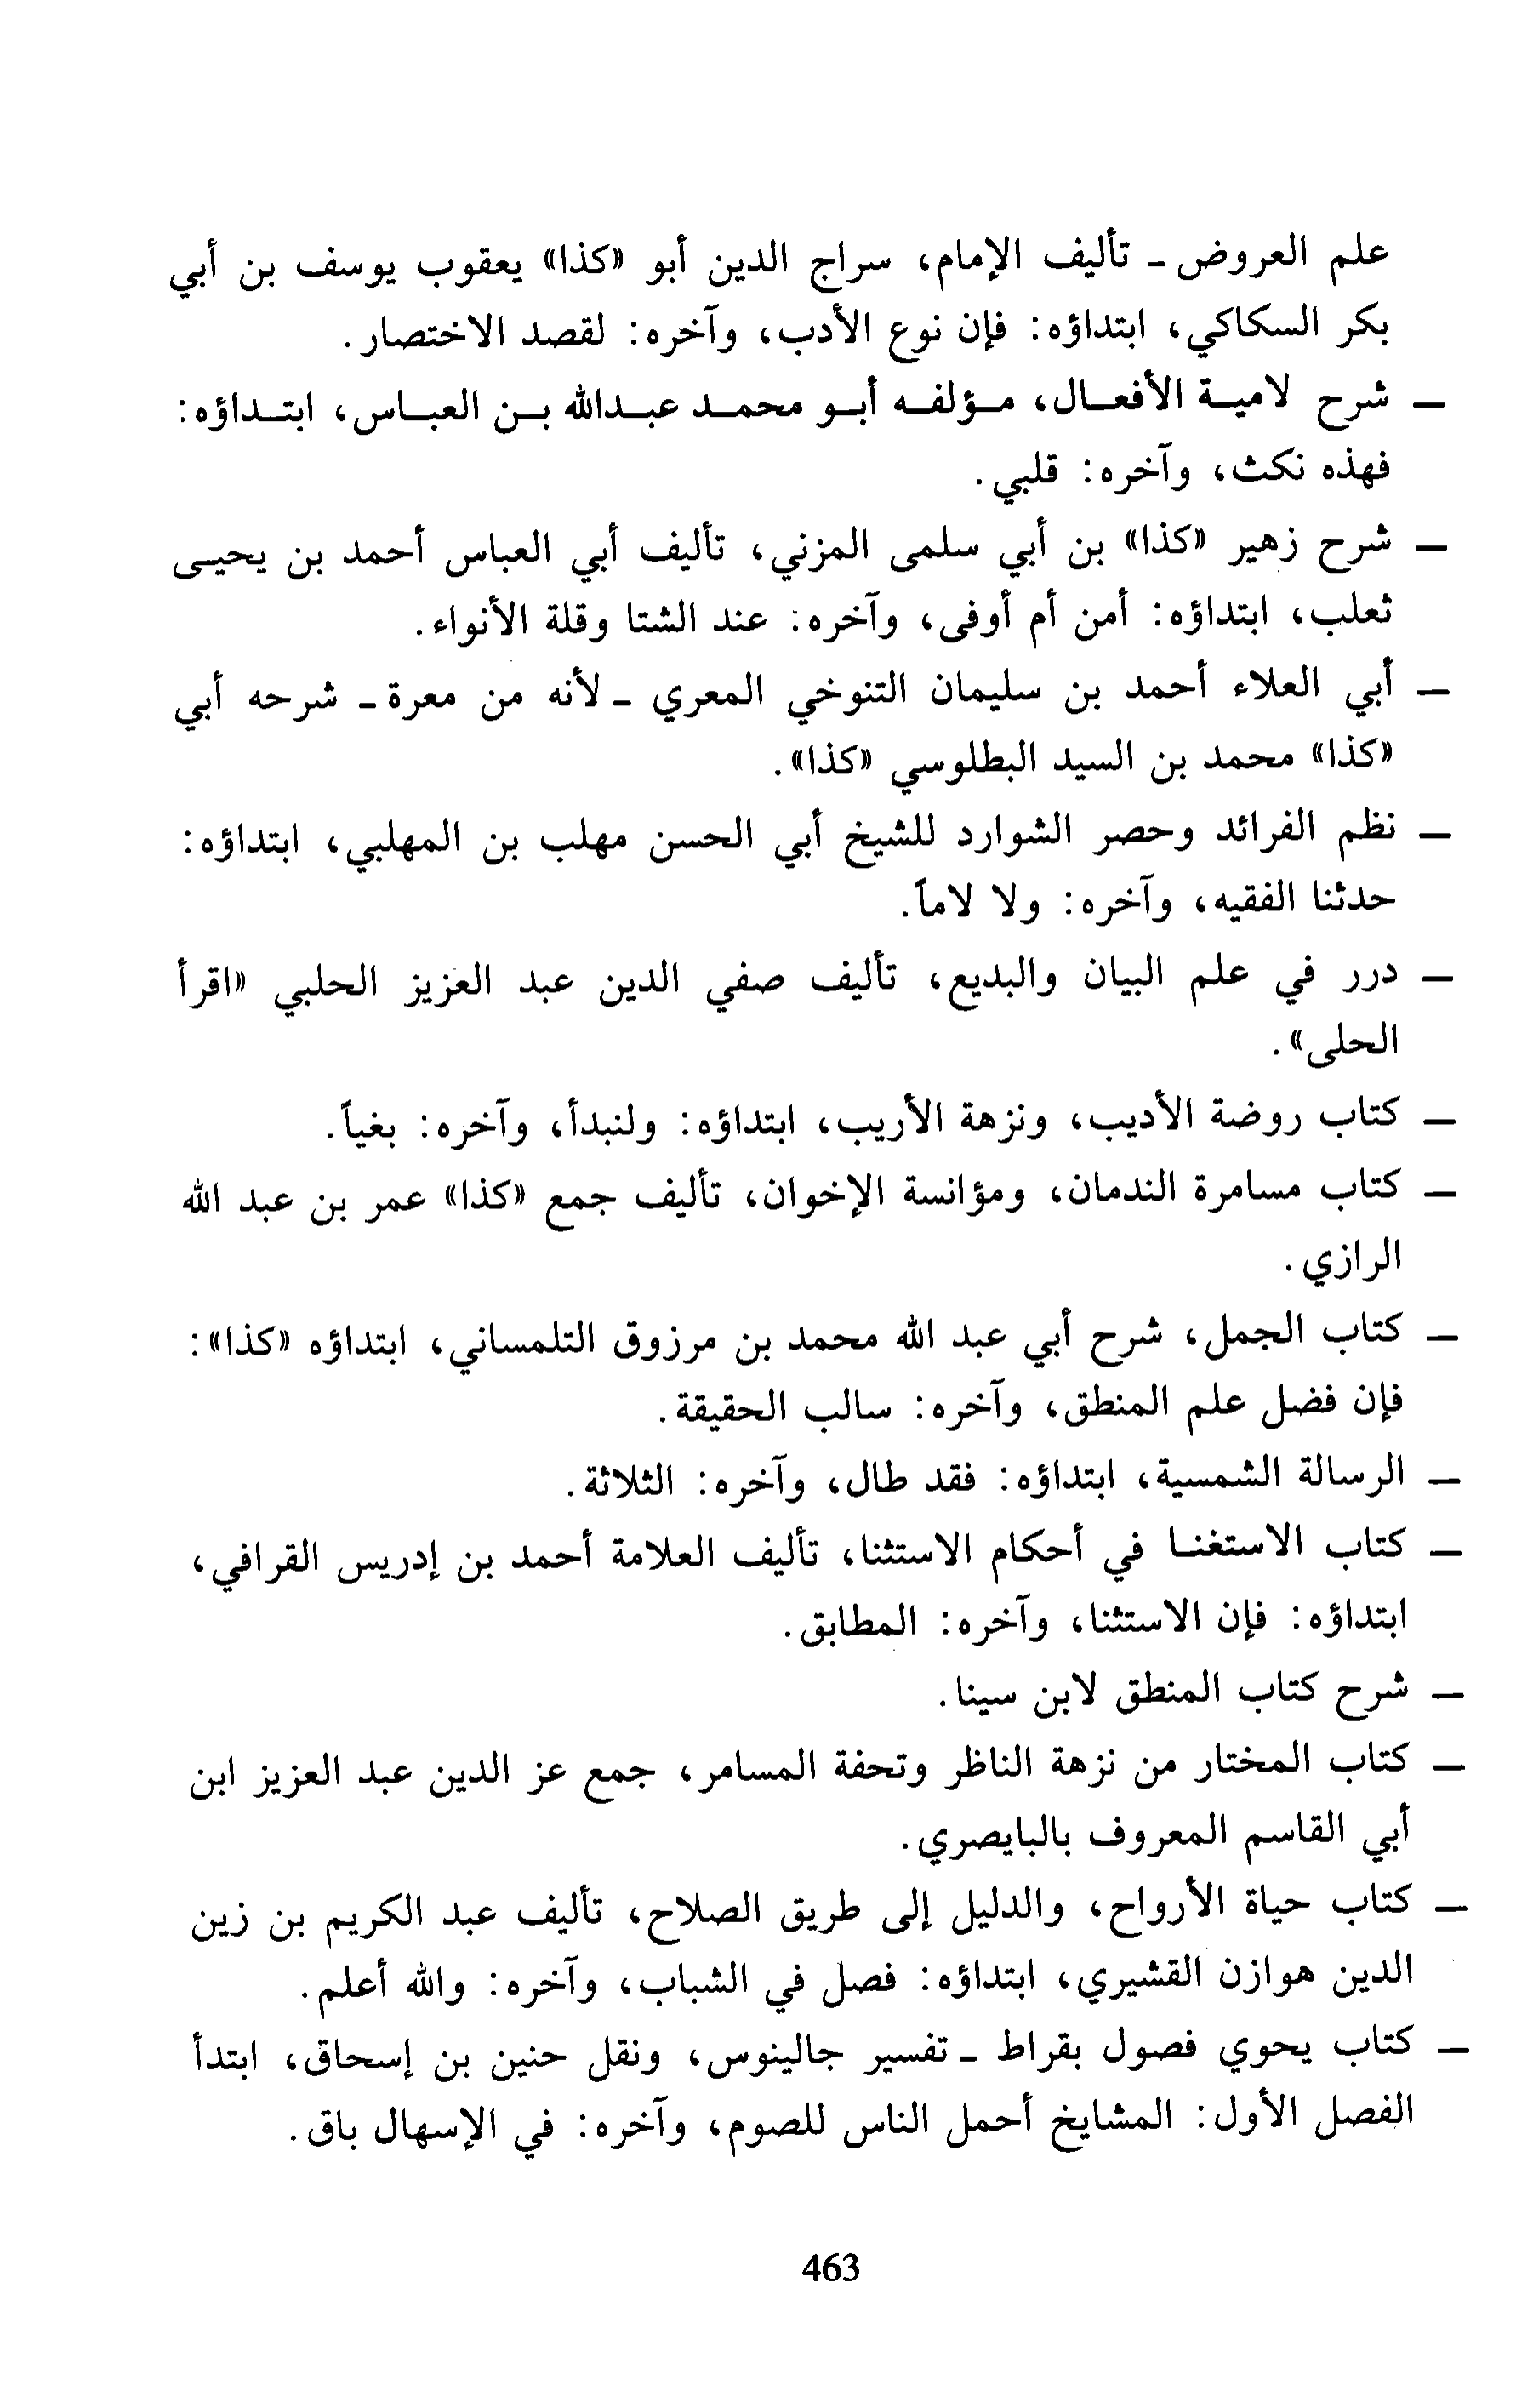 علم العروض - تأليف الإمام، سراج الدين أبو «كذا» يعقوب يوسف بن أبي
بكر السكاكي، ابتداؤه: فإن نوع الأدب، وآخره: لقصد الاختصار.
— شرح لامية الأفعال، مؤلفه أبو محمد عبدالله بن العباس، ابتداؤه:
فهذه نكث، وآخره: قلبي.
— شرح زهير «كذا» بن أبي سلمى المزني، تأليف أبي العباس أحمد بن يحيى
ثعلب، ابتداؤه: أمن أم أوفى، وآخره: عند الشتا وقلة الأنواء.
— أبي العلاء أحمد بن سليمان التنوخي المعري - لأنه من معرة - شرحه أبي
«كذا» محمد بن السيد البطلوسي «كذا».
— نظم الفرائد وحصر الشوارد للشيخ أبي الحسن مهلب بن المهلبي، ابتداؤه:
حدثنا الفقيه، وآخره: ولا لاماً.
— درر في علم البيان والبديع، تأليف صفي الدين عبد العزيز الحلبي «اقرأ
الحلى».
— كتاب روضة الأديب، ونزهة الأريب، ابتداؤه: ولنبدأ، وآخره: بغياً.
— كتاب مسامرة الندمان، ومؤانسة الإخوان، تأليف جمع «كذا» عمر بن عبد الله
الرازي.
— كتاب الجمل، شرح أبي عبد الله محمد بن مرزوق التلمساني، ابتداؤه «كذا»:
فإن فضل علم المنطق، وآخره: سالب الحقيقة.
— الرسالة الشمسية، ابتداؤه: فقد طال، وآخره: الثلاثة.
— كتاب الاستغنا في أحكام الاستثنا، تأليف العلامة أحمد بن إدريس القرافي،
ابتداؤه: فإن الاستثنا، وآخره: المطابق.
— شرح كتاب المنطق لابن سينا.
— كتاب المختار من نزهة الناظر وتحفة المسامر، جمع عز الدين عبد العزيز ابن
أبي القاسم المعروف بالبايصري.
— كتاب حياة الأرواح، والدليل إلى طريق الصلاح، تأليف عبد الكريم بن زين
الدين هوازن القشيري، ابتداؤه: فصل في الشباب، وآخره: والله أعلم.
— كتاب يحوي فصول بقراط - تفسير جالينوس، ونقل حنين بن إسحاق، ابتدأ
الفصل الأول: المشايخ أحمل الناس للصوم، وآخره: في الإسهال باق.
463